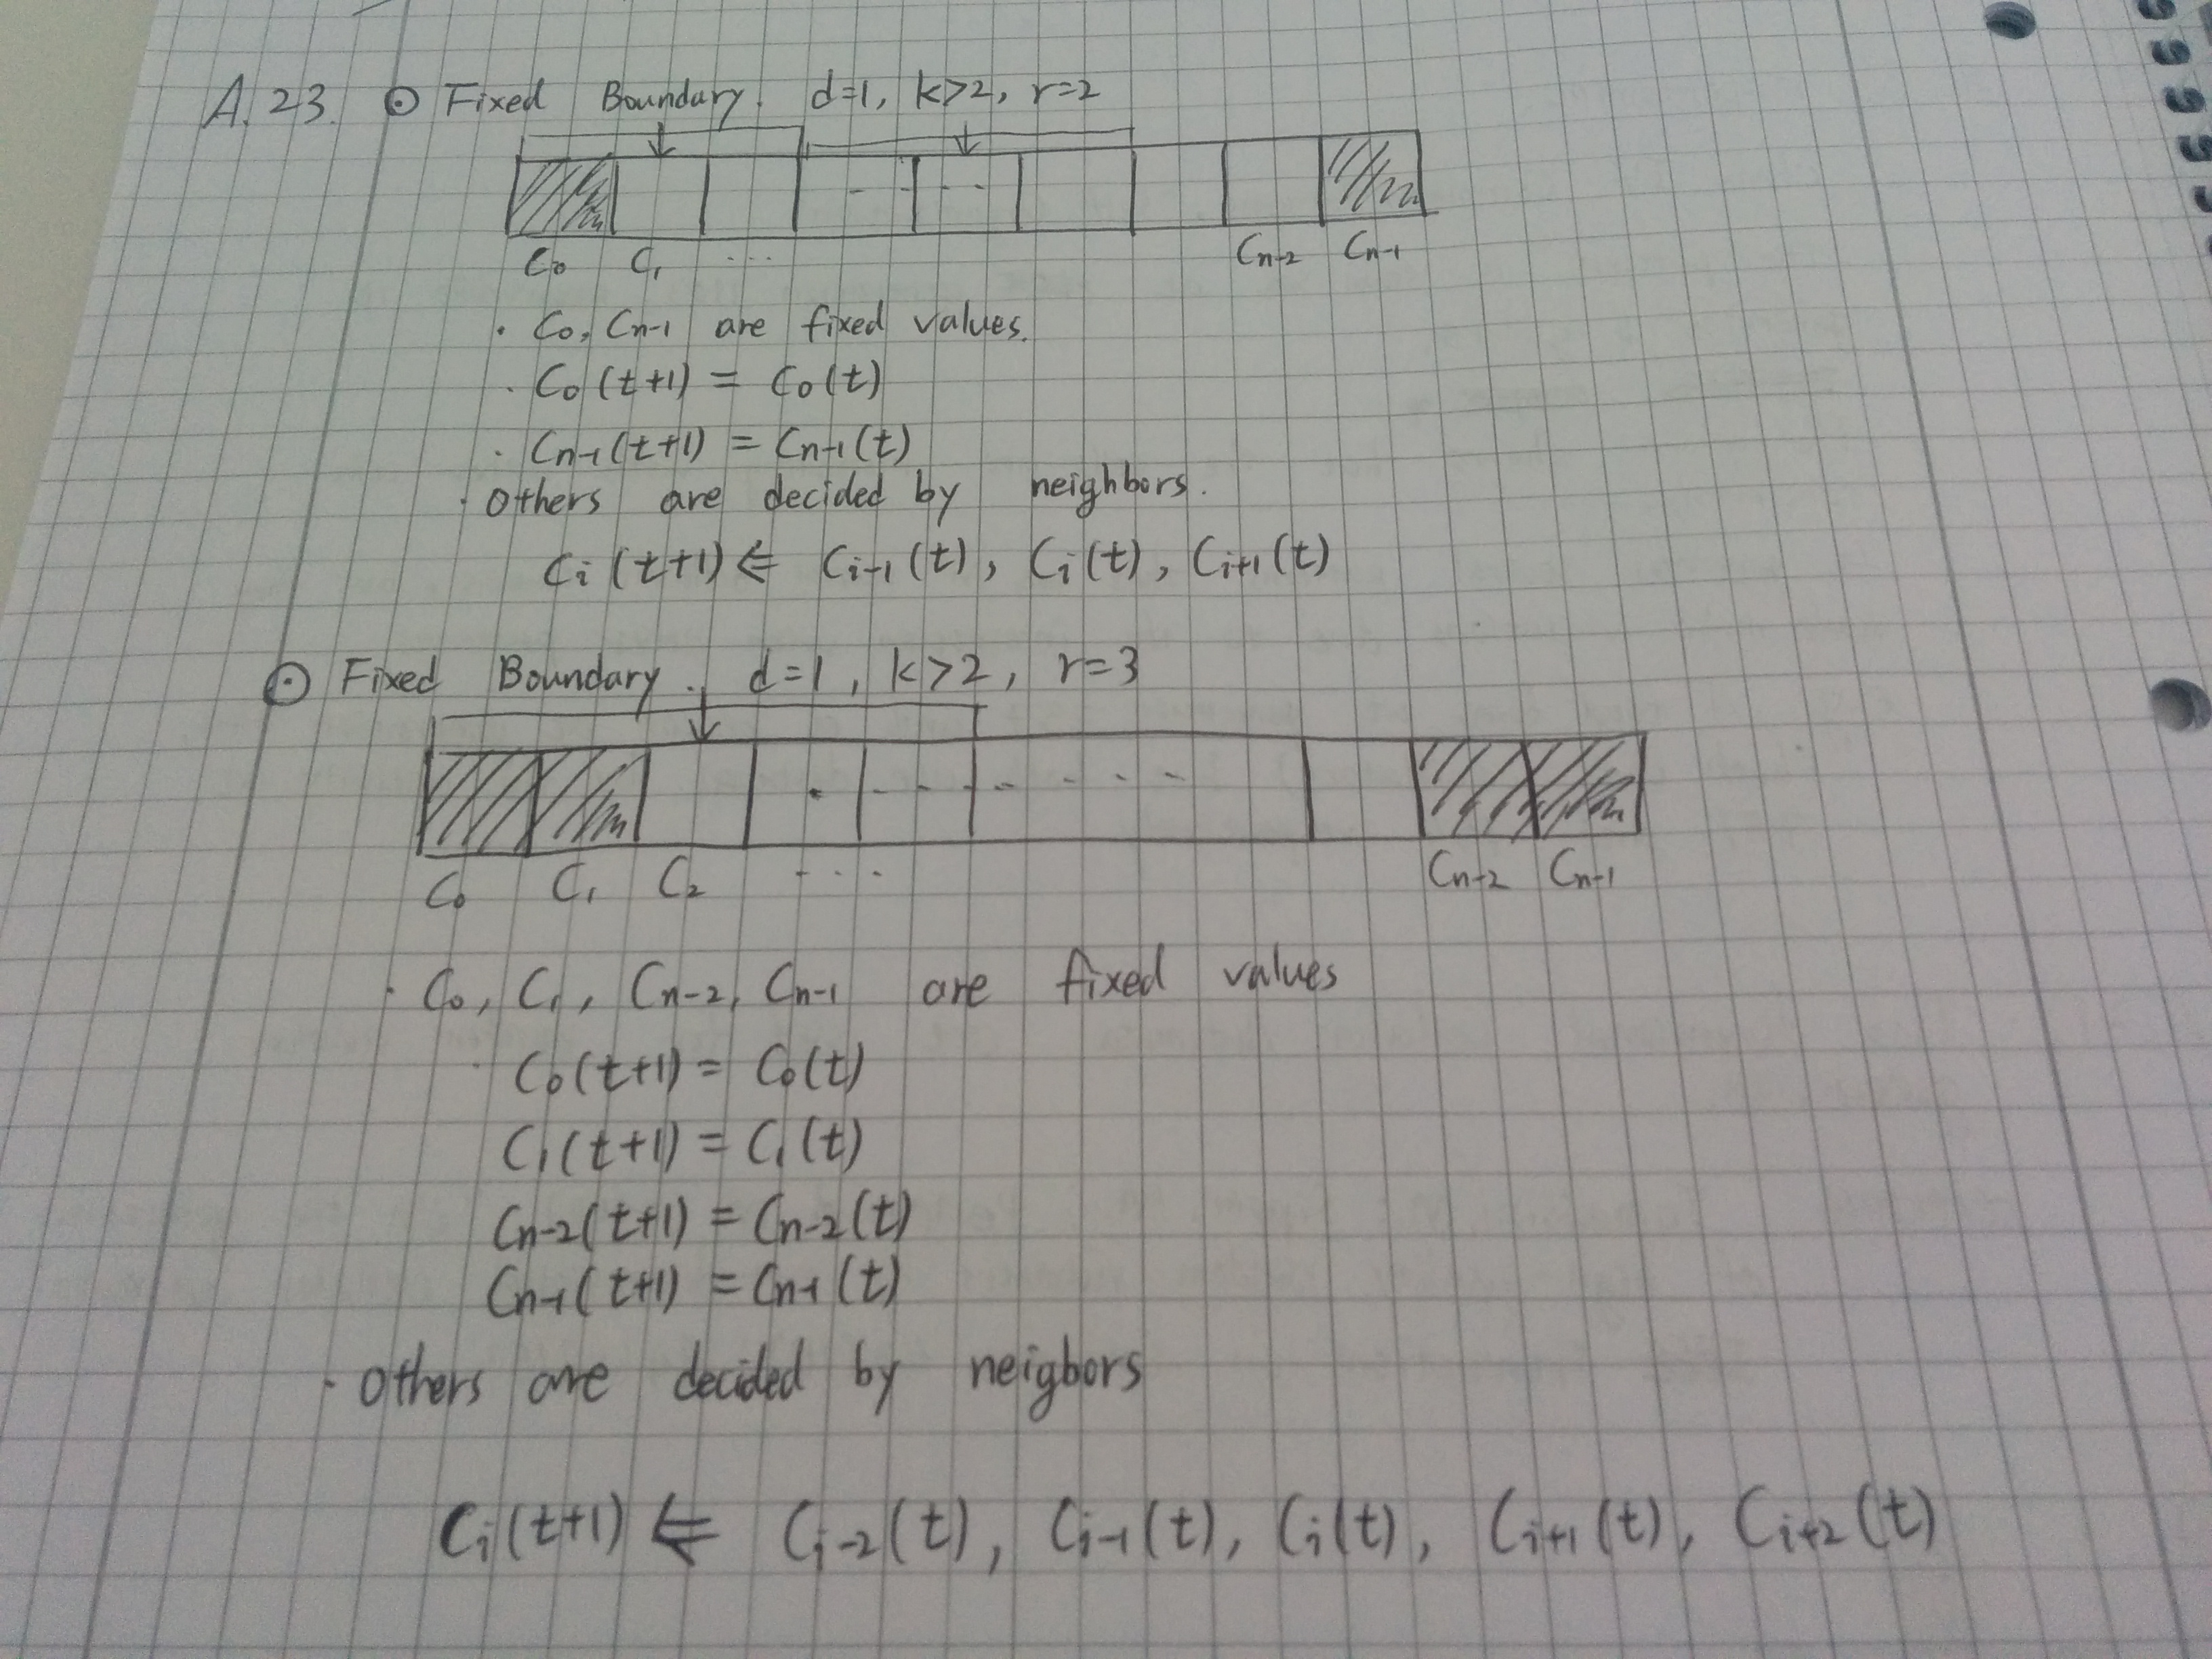 A.23. ⊙ Fixed Boundary. d=1, k>2, r=2
C₀ C₁ ... Cₙ₋₂ Cₙ₋₁
· C₀, Cₙ₋₁ are fixed values.
· C₀(t+1) = C₀(t)
· Cₙ₋₁(t+1) = Cₙ₋₁(t)
· others are decided by neighbors.
Cᵢ(t+1) ⇐ Cᵢ₋₁(t), Cᵢ(t), Cᵢ₊₁(t)
⊙ Fixed Boundary. d=1, k>2, r=3
C₀ C₁ C₂ ... Cₙ₋₂ Cₙ₋₁
· C₀, C₁, Cₙ₋₂, Cₙ₋₁ are fixed values
· C₀(t+1) = C₀(t)
C₁(t+1) = C₁(t)
Cₙ₋₂(t+1) = Cₙ₋₂(t)
Cₙ₋₁(t+1) = Cₙ₋₁(t)
· others are decided by neigbors
Cᵢ(t+1) ⇐ Cᵢ₋₂(t), Cᵢ₋₁(t), Cᵢ(t), Cᵢ₊₁(t), Cᵢ₊₂(t)